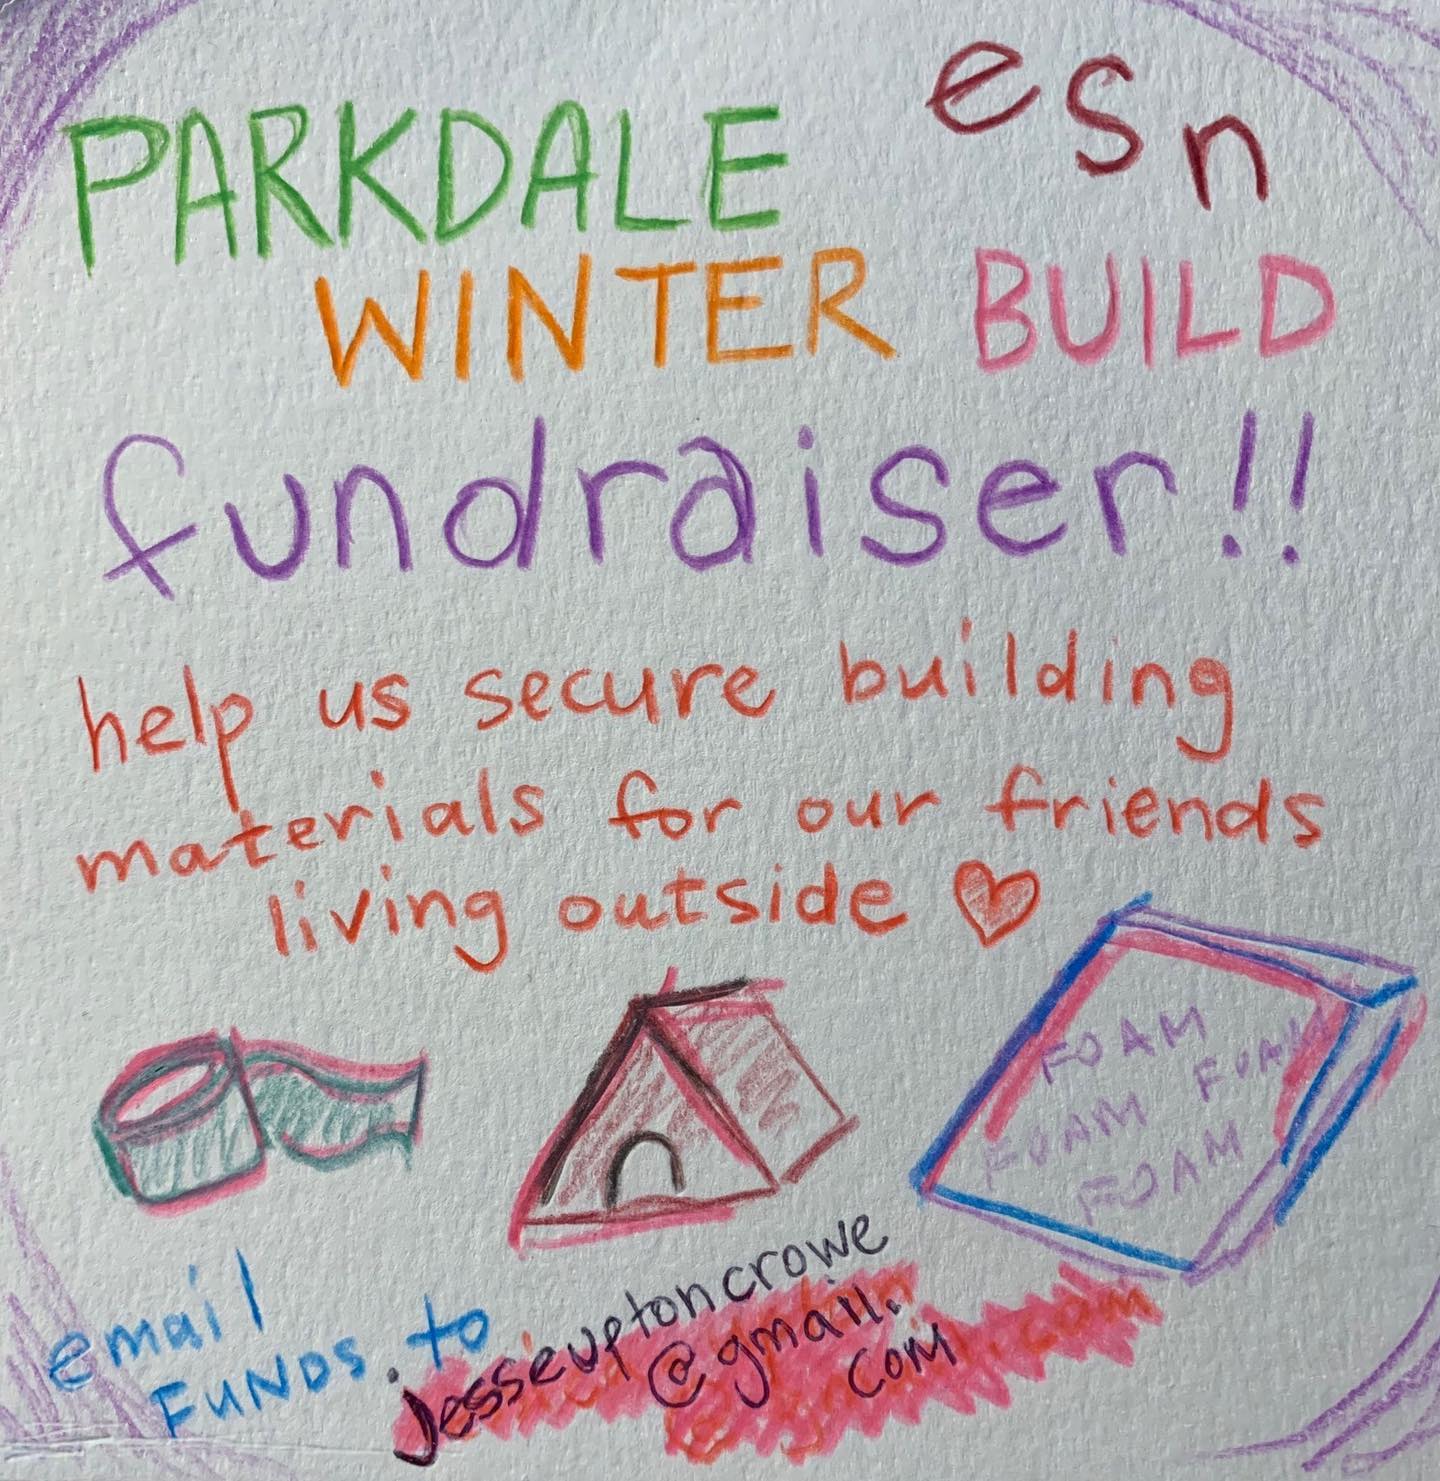 PARKDALE esn
WINTER BUILD
fundraiser!!
help us secure building
materials for our friends
living outside
FOAM
FOAM
FOAM
FOAM
email
FUNDS. to
jesseuptoncrowe
@gmail.
com
.com